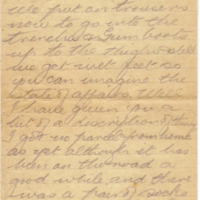 We put on trousers
now to go into the
trenches & Gum boots
up to the thighs & still
we get wet feet so
you can imagine the
state of affairs. Well
I have given you a
bit of a description of
I got no parcel from home
as yet although it has
been on the road a
good while and there
was a pair of socks